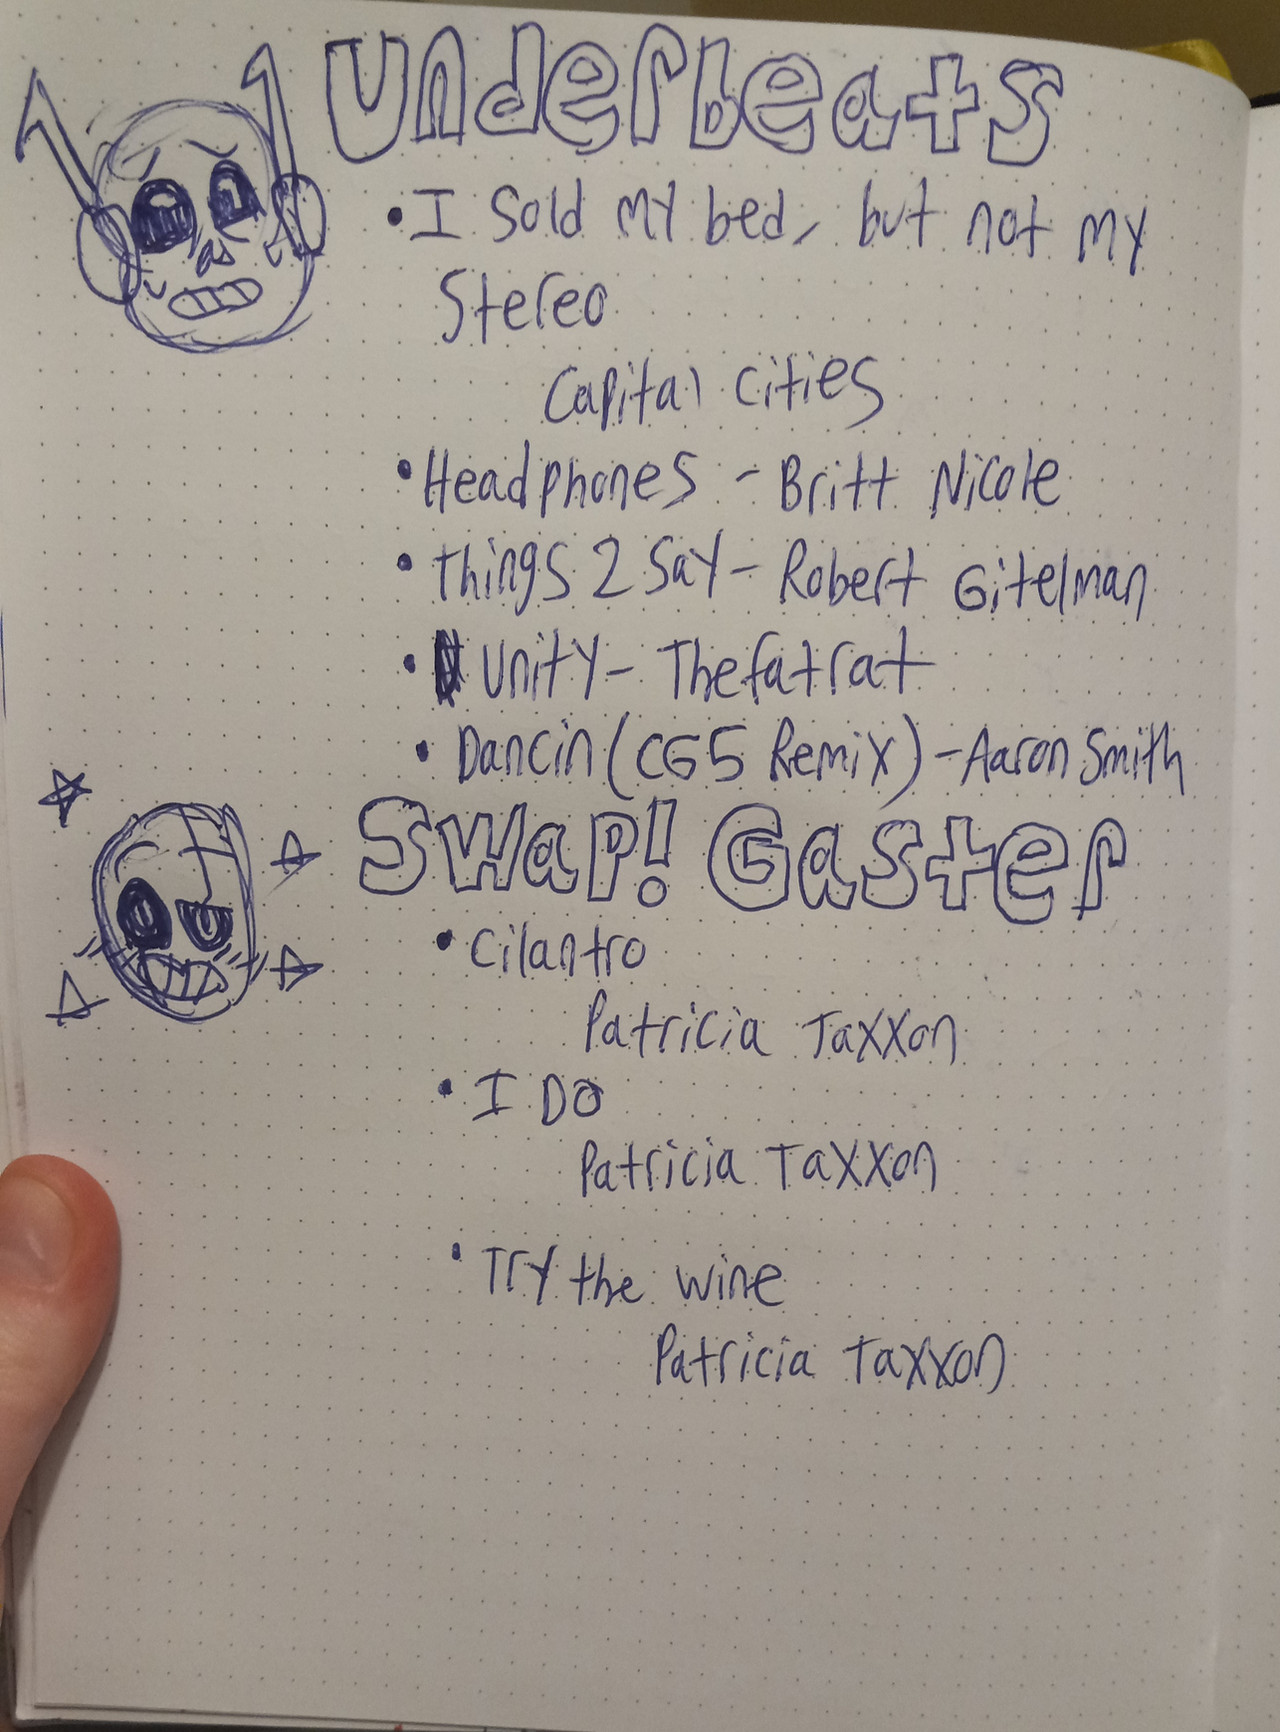 Underbeats
• I Sold my bed, but not my
Stereo
Capital Cities
• Headphones - Britt Nicole
• Things 2 Say - Robert Gitelman
• Unity - Thefatrat
• Dancin (CG5 Remix) - Aaron Smith
Swap! Gaster
• Cilantro
Patricia Taxxon
• I DO
Patricia Taxxon
• Try the wine
Patricia Taxxon